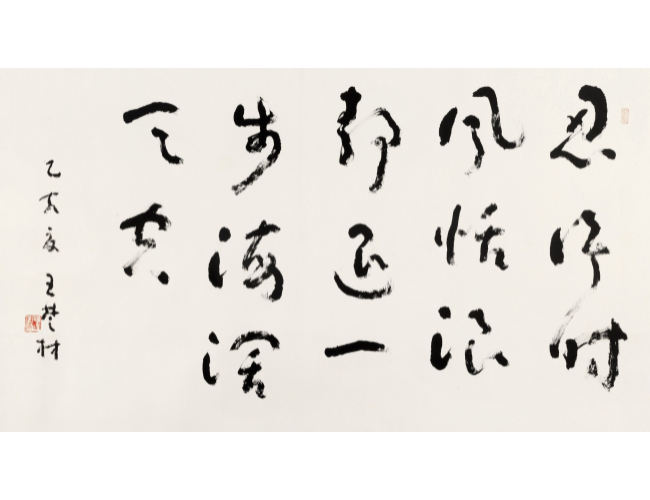 忍时
风恬浪
静退一
步海阔
天空
乙亥夏 王楚材